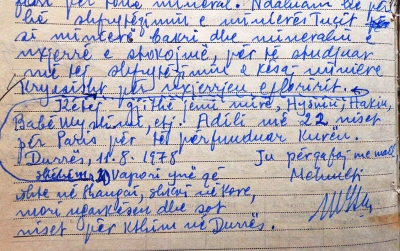 për tonë mineral. Ndaluam
bë shfrytëzimin e minierës Tuçit
si minierë bakri dhe mineralin e
nxjerrë e spokojmë, për të studjuar
më tej shfrytëzimin e kësaj miniere
Kryesisht për nxjerrjen e
Këtej gjithë jemi mirë, Hysniu, Hakiu,
Babë Myslimi, etj. Adili më 22 niset
për Paris për të përfunduar kurën.
Durrës, 11.8.1978 Ju përqafoj me mall
Vapori ynë që Mehmeti
ishte në Shangai, shkoi në Kore,
mori ngarkesën dhe sot
niset për kthim në Durrës.